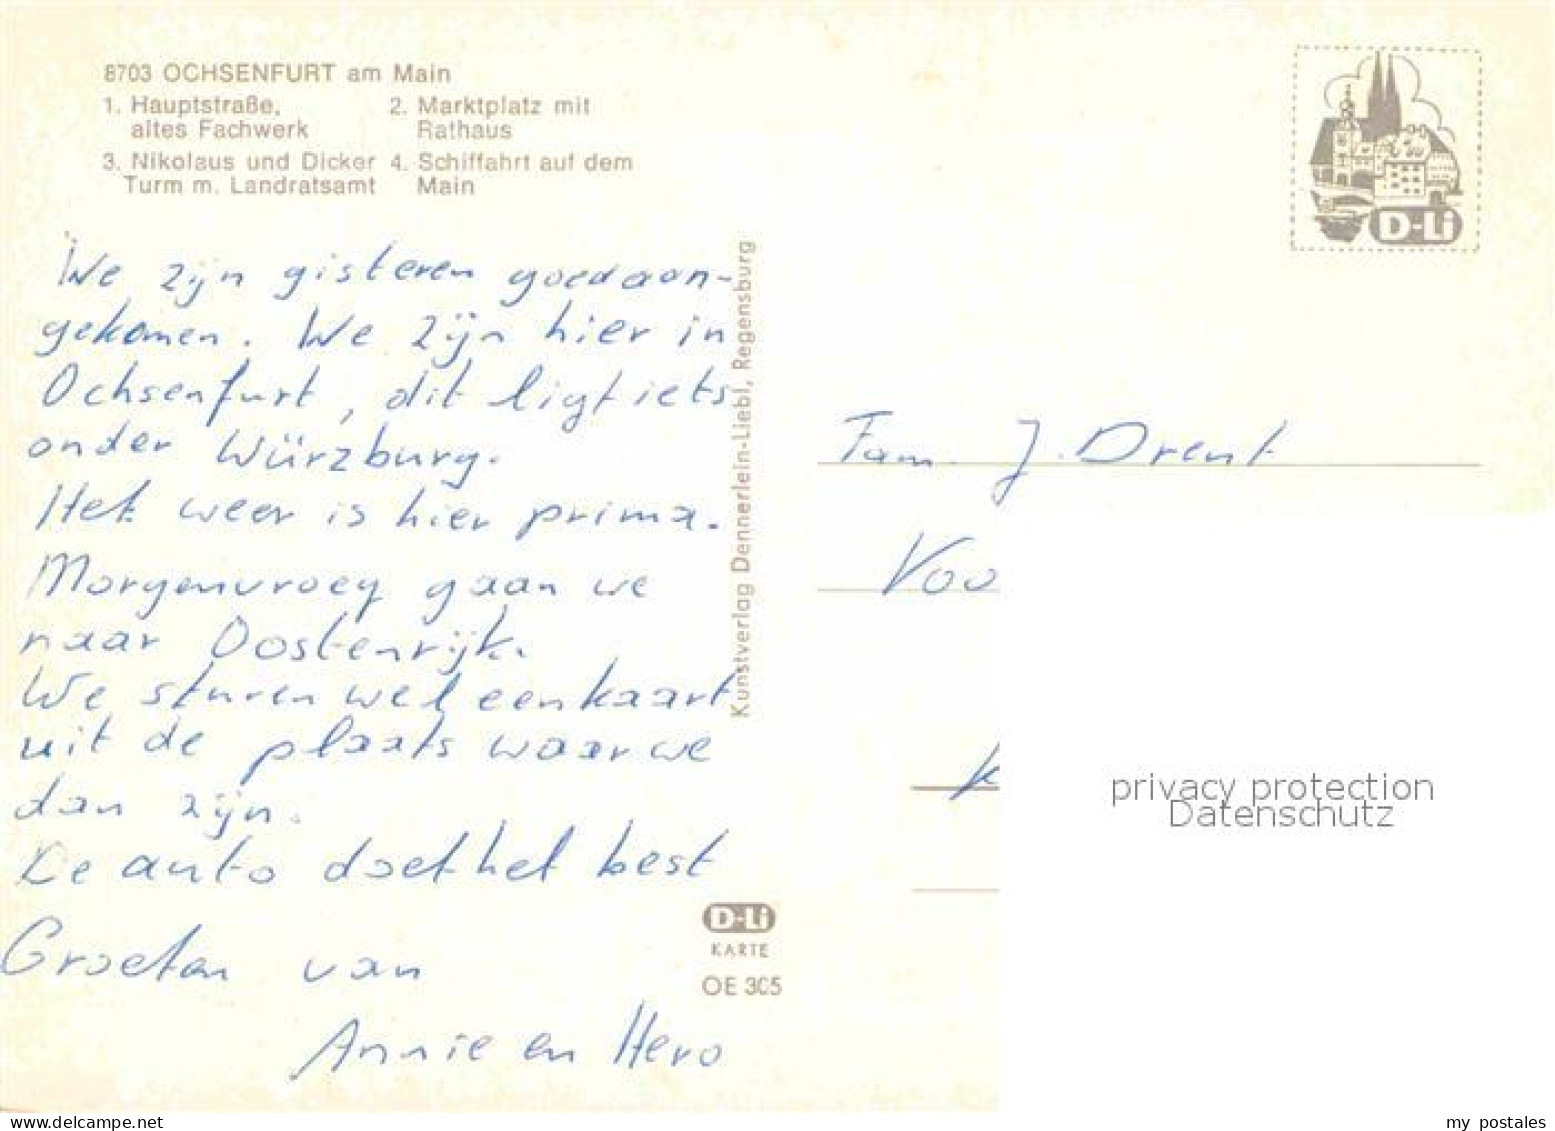 8703 OCHSENFURT am Main
1. Hauptstraße,
altes Fachwerk
2. Marktplatz mit
Rathaus
3. Nikolaus und Dicker
Turm m. Landratsamt
4. Schiffahrt auf dem
Main
We zijn gisteren goed aan-
gekomen. We zijn hier in
Ochsenfurt, dit ligt iets
onder Würzburg.
Het weer is hier prima.
Morgenvroeg gaan we
naar Oostenrijk.
We sturen wel een kaart
uit de plaats waar we
dan zijn.
De auto doet het best
Groeten van
Annie en Hero
Kunstverlag Dennerlein-Liebl, Regensburg
D-Li
KARTE
OE 305
D-Li
Fam. J. Drent
Voo
K
privacy protection
Datenschutz
my postales